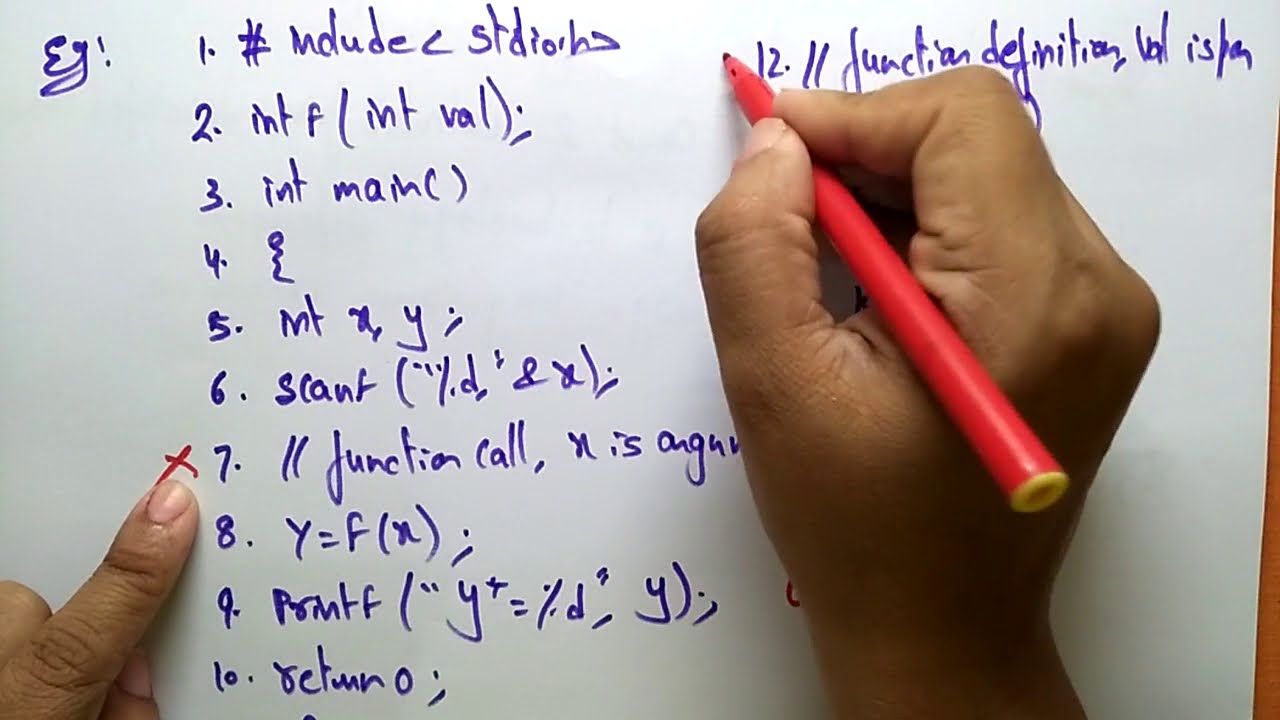 Eg:
1. # include < stdio.h>
2. int f ( int val);
3. int main()
4. {
5. int x, y ;
6. scanf ("%d," & x);
7. // function call, x is
8. Y=F(x) ;
9. Printf ("y+=%d", y);
10. return 0 ;
12. // function definition, val is